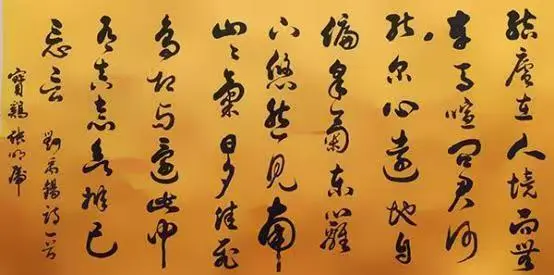 結廬在人境而無
車馬喧問君何
能爾心遠地自
偏采菊東籬
下悠然見南
山々氣日夕佳飛
鳥相與還此中
有真意欲辨已
忘言 劉禹錫詩一首
寶鷄